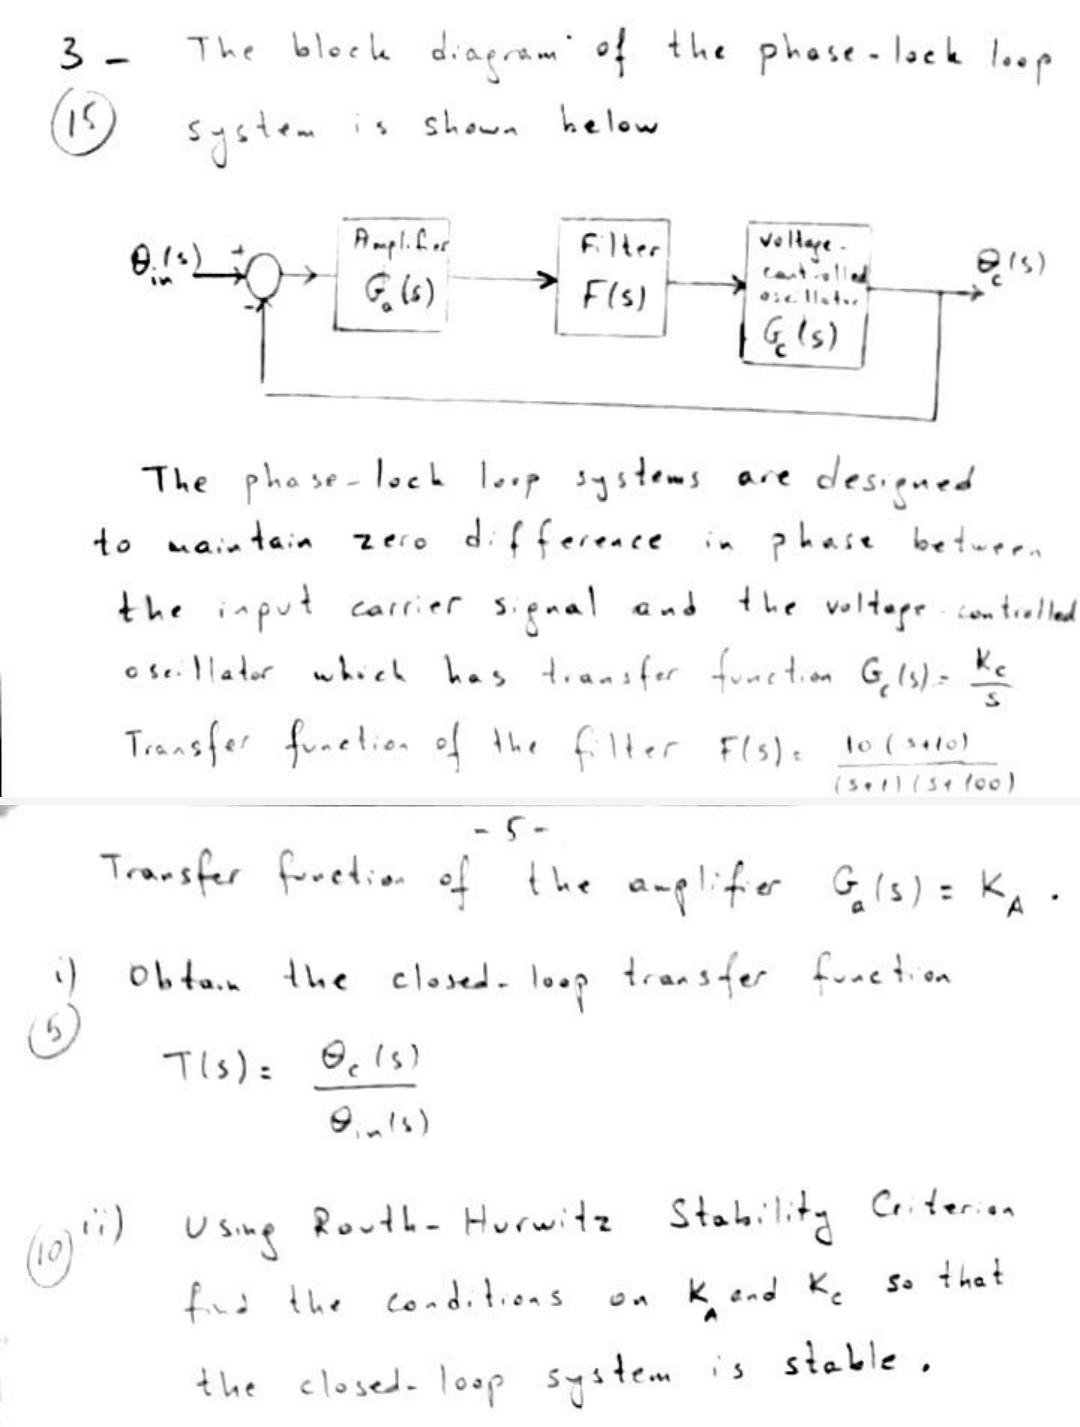 3 - The block diagram of the phase-lock loop
(15) system is shown below
θin(s) + - Amplifier Ga(s) Filter F(s) voltage-controlled oscillator Gc(s) θc(s)
The phase-lock loop systems are designed
to maintain zero difference in phase between
the input carrier signal and the voltage-controlled
oscillator which has transfer function Gc(s) = Kc/s
Transfer function of the filter F(s) = 10(s+10)/(s+1)(s+100)
- 5 -
Transfer function of the amplifier Ga(s) = KA .
i) Obtain the closed-loop transfer function
(5)
T(s) = θc(s)/θin(s)
(10) ii) Using Routh-Hurwitz Stability Criterion
find the conditions on KA and Kc so that
the closed-loop system is stable .